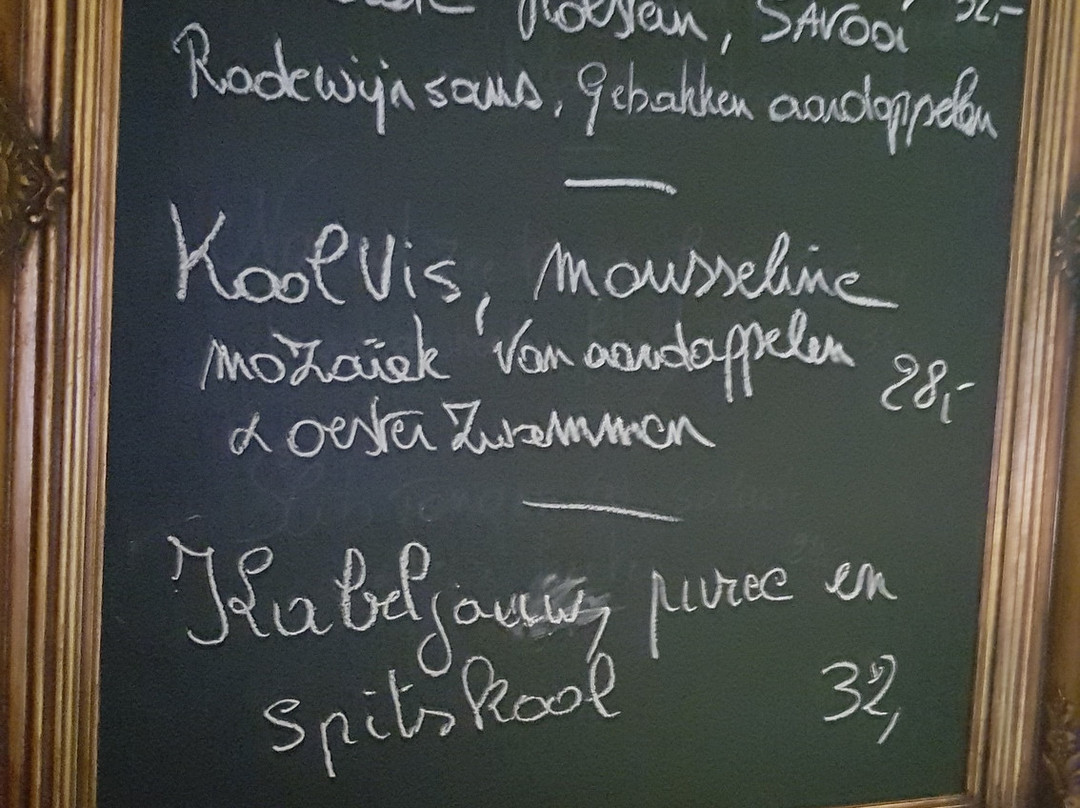 Holstein, Savooi 32,-
Rodewijnsaus, Gebakken aardappelen
Koolvis, mousseline
mozaïek van aardappelen
& oesterzwammen 28,-
Kabeljauw, puree en
spitskool 32,